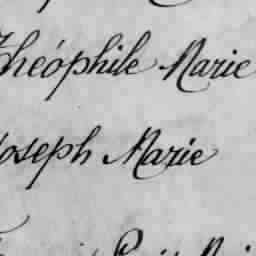 Théophile Marie
Joseph Marie